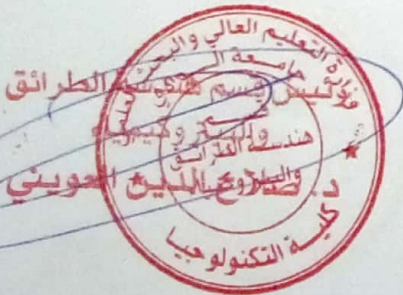 وزارة التعليم العالي والبحث العلمي
جامعة
رئيس قسم هندسة الطرائق
قسم
والبتروكيمياء
هندسة الطرائق
د. صلاح الدين العويني
كلية التكنولوجيا